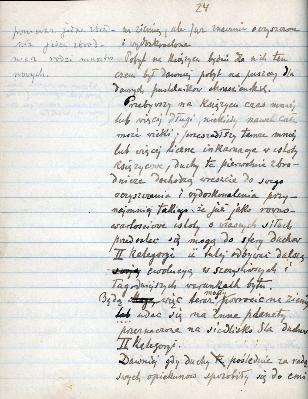 24
ponieważ jedne zbrod-
nie jedne zbrod-
nowych.
na ziemię, ale już znacznie oczyszczone
i wydoskonalone.
Pobyt na Księżycu będzie dla nich tem
czem był dawniej pobyt na puszczy dla
dawnych pustelników chrześcijańskich.
Przebywszy na Księżycu czas mniej
lub więcej długi niekiedy nawet całe
może wieki, przeszedłszy tamże mniej
lub więcej liczne inkarnacye w istoty
księżycowe, duchy te pierwotnie zbro-
dnicze dochodzą wreszcie do swego
oczyszczenia i wydoskonalenia przy-
najmniej takiego, że już jako równo-
wartościowe istoty o własnych siłach
przedostać się mogą do sfery duchów
II Kategorji i tutaj odbywać dalszą
ewolucyę w szczęśliwszych i
łagodniejszych warunkach bytu.
Będą więc teraz mogły powrócić na ziemię
lub udać się na inne planety
przeznaczone na siedlisko dla duchów
II Kategorji.
Dawniej gdy duchy te pośledniejsze za radą
swych opiekunów sposobiły się do emi-